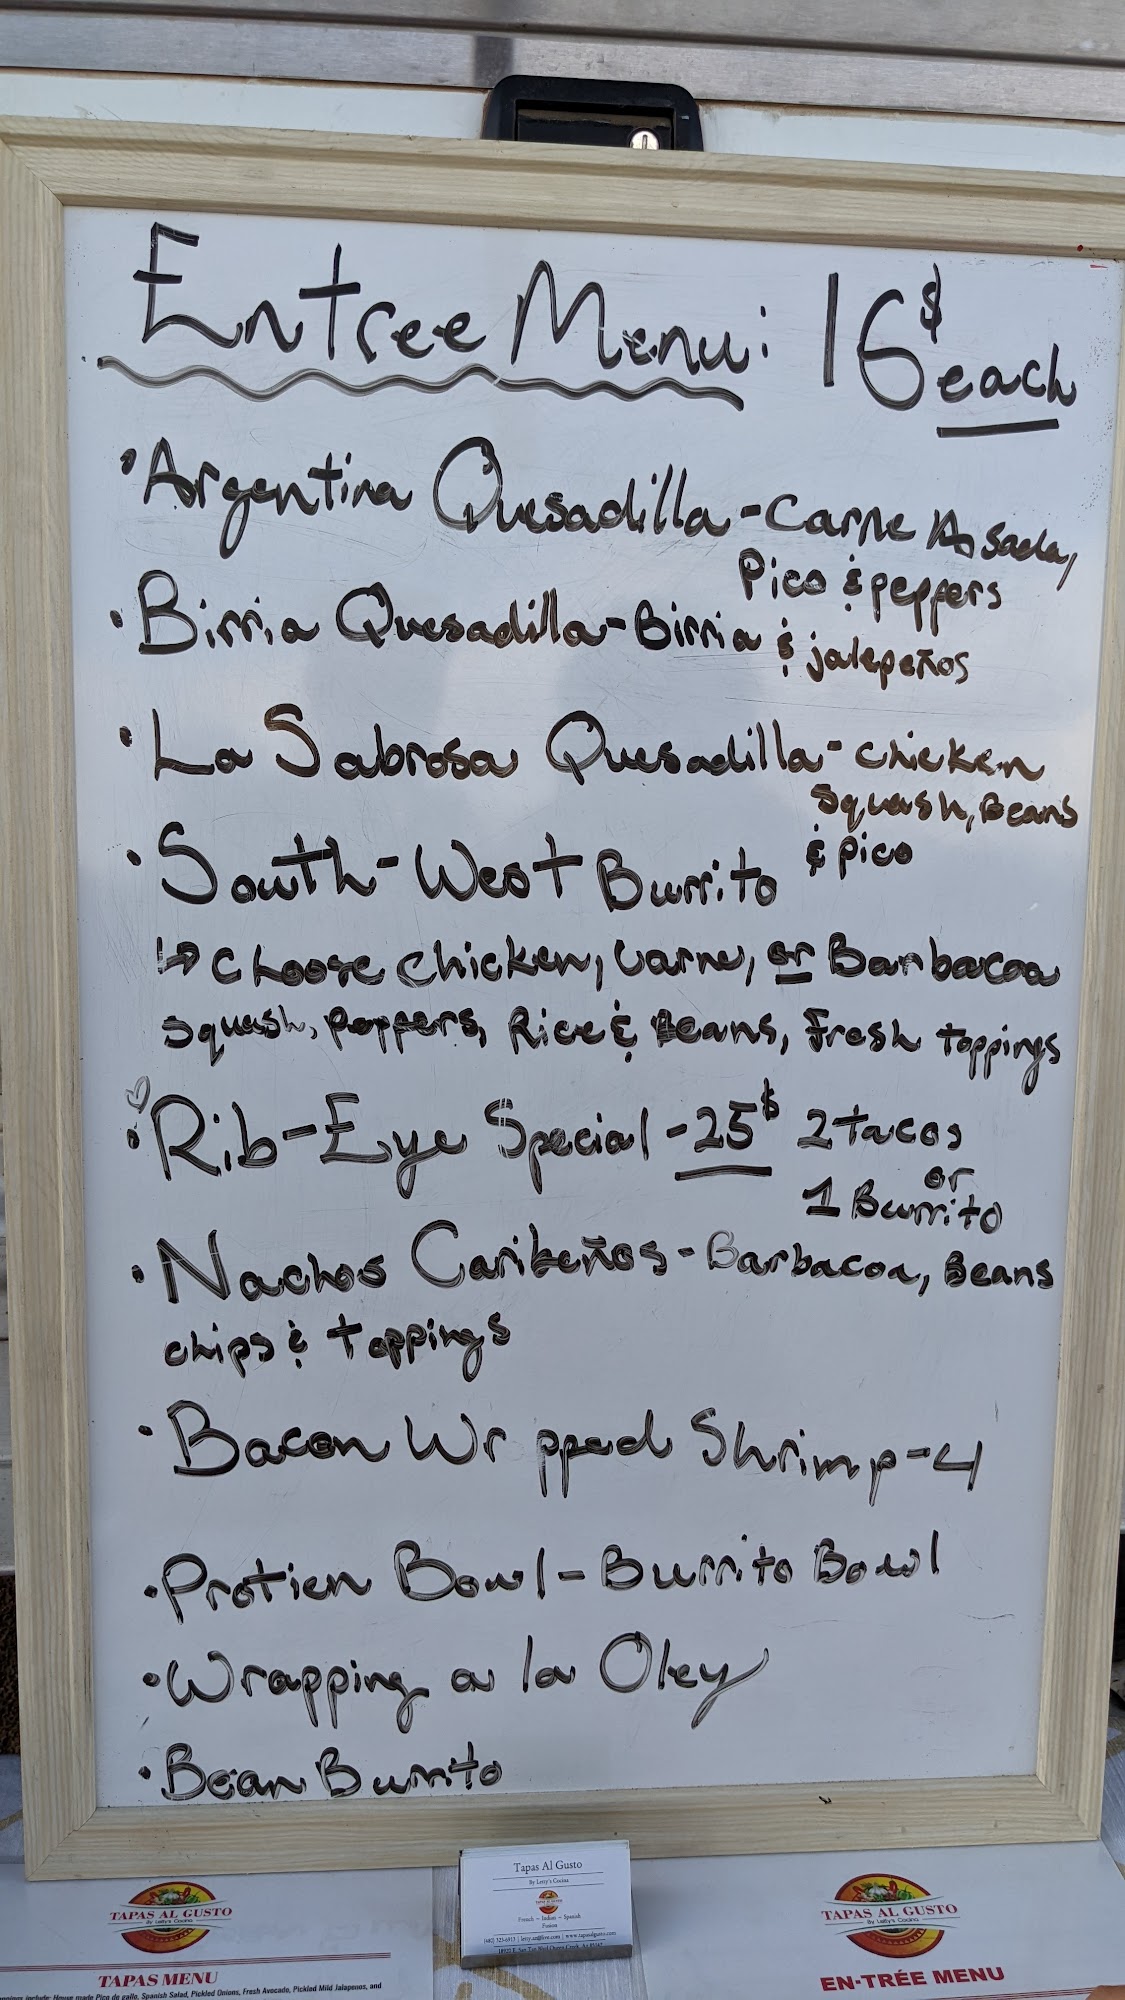 Entree Menu: 16$ each
• Argentina Quesadilla - Carne Asada,
Pico & peppers
• Birria Quesadilla - Birria & jalepeños
• La Sabrosa Quesadilla - chicken
Squash, Beans
& pico
• South-West Burrito
↳ Choose chicken, Carne, or Barbacoa
Squash, Peppers, Rice & Beans, Fresh toppings
• Rib-Eye Special - 25$ 2 tacos
or
1 Burrito
• Nachos Caribeños - Barbacoa, Beans
chips & toppings
• Bacon Wr pped Shrimp - 4
• Protien Bowl - Burrito Bowl
• Wrapping a la Oley
• Bean Burrito
Tapas Al Gusto
By Letty's Cocina
TAPAS AL GUSTO
French ~ Indian ~ Spanish
Fusion
TAPAS AL GUSTO
By Letty's Cocina
TAPAS MENU
House made Pico de gallo, Spanish Salad, Pickled Onions, Fresh Avocado, Pickled Mild Jalapenos, and
TAPAS AL GUSTO
By Letty's Cocina
EN-TRÉE MENU